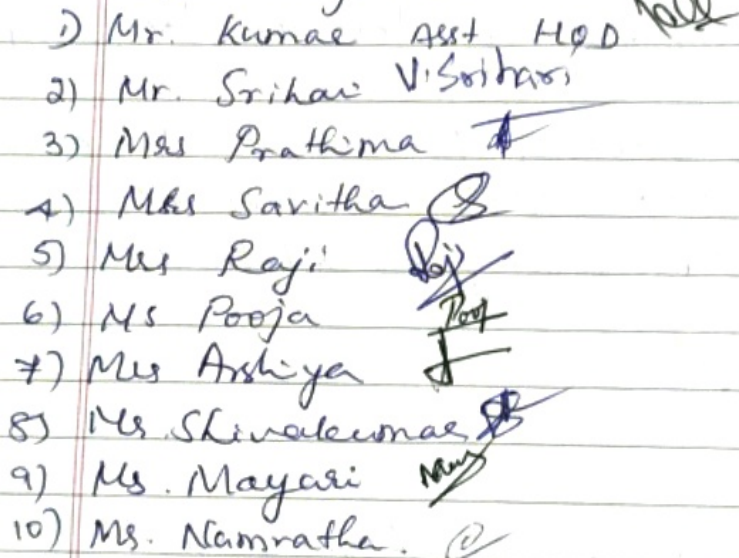 1) Mr. Kumar Asst HOD
2) Mr. Srihari V. Srihari
3) Mrs Prathima
4) Mrs Savitha
5) Mrs Raji Raji
6) Ms Pooja Pooj
7) Mrs Arshiya
8) Mr Shivakumar
9) Ms. Mayari
10) Ms. Namratha.